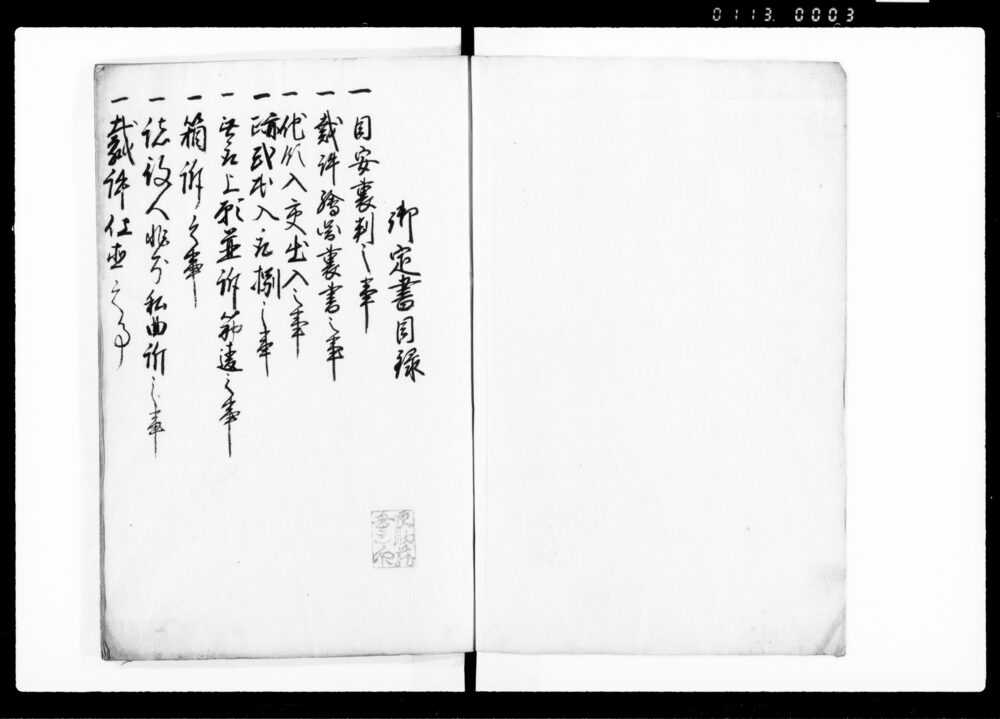 0113. 0003
御定書目録
一目安裏判之事
一裁許繪図裏書之事
一他領入交出入之事
一跡式出入取捌之事
一無取上願並訴筋違之事
一箱訴之事
一諸役人非分私曲訴之事
一裁許仕直之事